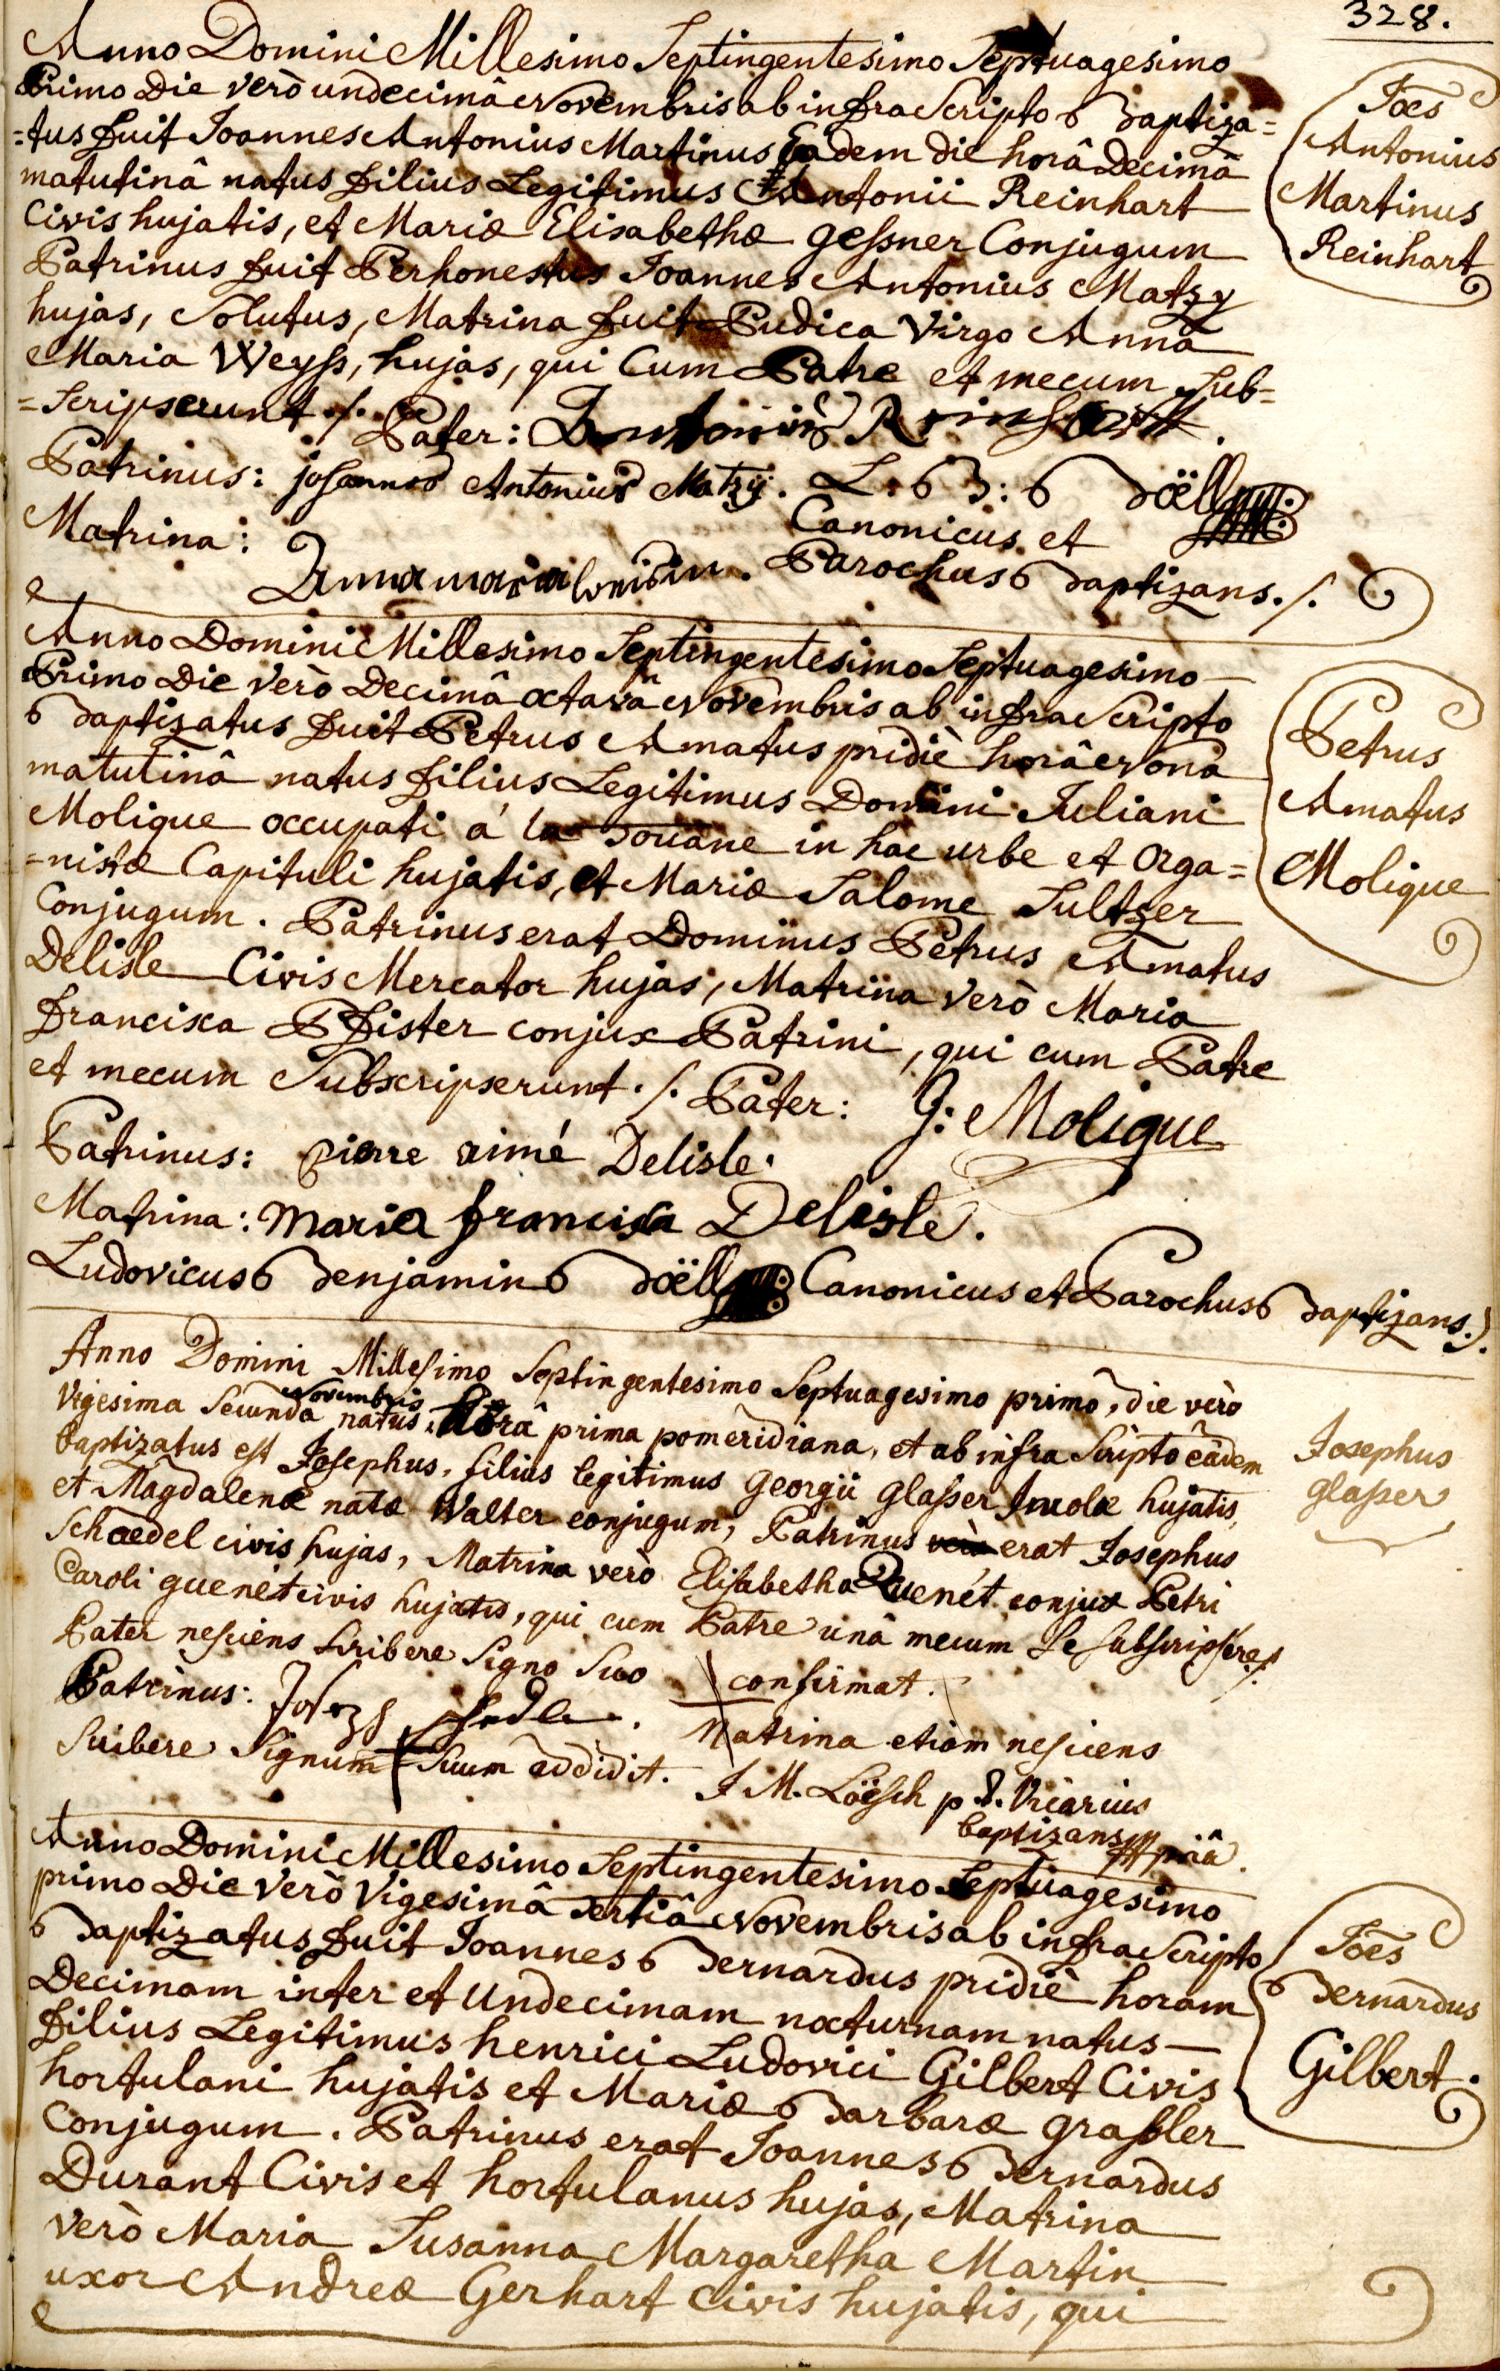 328.
Anno Domini Millesimo Septingentesimo Septuagesimo
Primo Die verò undecimâ Novembris ab infra Scripto Baptiza=
=tus fuit Joannes Antonius Martinus Eâdem die horâ Decimâ
matutinâ natus filius Legitimus Antonii Reinhart
Civis hujatis, et Mariæ Elisabethæ Gessner Conjugum
Patrinus fuit Perhonestus Joannes Antonius Matzy
hujas, Solutus, Matrina fuit Pudica Virgo Anna
Maria Weyss, hujas, qui Cum Patre et mecum Sub=
=Scripserunt ./. Pater: Antonius Reinhart.
Patrinus: johannes Antonius Matzÿ. L: B: Boëll
Canonicus et
Matrina: Anna maria weisin. Parochus Baptizans ./.
Joẽs
Antonius
Martinus
Reinhart
Anno Domini Millesimo Septingentesimo Septuagesimo
Primo Die verò Decimâ octavâ Novembris ab infra Scripto
Baptizatus fuit Petrus Amatus pridiè horâ Nonâ
matutinâ natus filius Legitimus Domini Juliani
Molique occupati á la Doüane in hac urbe et Orga=
=nistæ Capituli hujatis, et Mariæ Salome Sultzer
Conjugum. Patrinus erat Dominus Petrus Amatus
Delisle Civis Mercator hujas, Matrina verò Maria
Francisca Pfister conjux Patrini, qui cum Patre
et mecum Subscripserunt ./. Pater: J: Molique
Patrinus: pierre aimé Delisle.
Matrina: Maria francisca Delisle.
Ludovicus Benjamin Boëll Canonicus et Parochus Baptizans ./.
Petrus
Amatus
Molique
Anno Domini Millesimo Septingentesimo Septuagesimo primo, die verò
Vigesima Secunda Novembris natus, horâ prima pomeridiana, et ab infra Scripto eâdem
baptizatus est Josephus, filius legitimus Georgii Glasser Incolæ hujatis,
et Magdalenæ natæ Walter conjugum, Patrinus verò erat Josephus
Schaedel civis hujas, Matrina verò Elisabetha Quenét conjux Petri
Caroli guenét civis hujatis, qui cum Patre unâ mecum Se subscripsere ./.
Pater nesciens scribere Signo Suo + confirmat.
Patrinus: Joseph Schedle. Matrina etiam nesciens
Scribere Signum + Suum addidit. J M. Löesch p. t. Vicarius
baptizans
Josephus
glasser
Anno Domini Millesimo Septingentesimo Septuagesimo
primo Die verò Vigesimâ Tertiâ Novembris ab infra Scripto
Baptizatus fuit Joannes Bernardus pridiè horam
Decimam inter et Undecimam nocturnam natus
filius Legitimus henrici Ludovici Gilbert Civis
hortulani hujatis et Mariæ Barbaræ grassler
Conjugum. Patrinus erat Joannes Bernardus
Durant Civis et hortulanus hujas, Matrina
verò Maria Susanna Margaretha Martin
uxor Andreæ Gerhart Civis hujatis, qui
Joẽs
Bernardus
Gilbert.